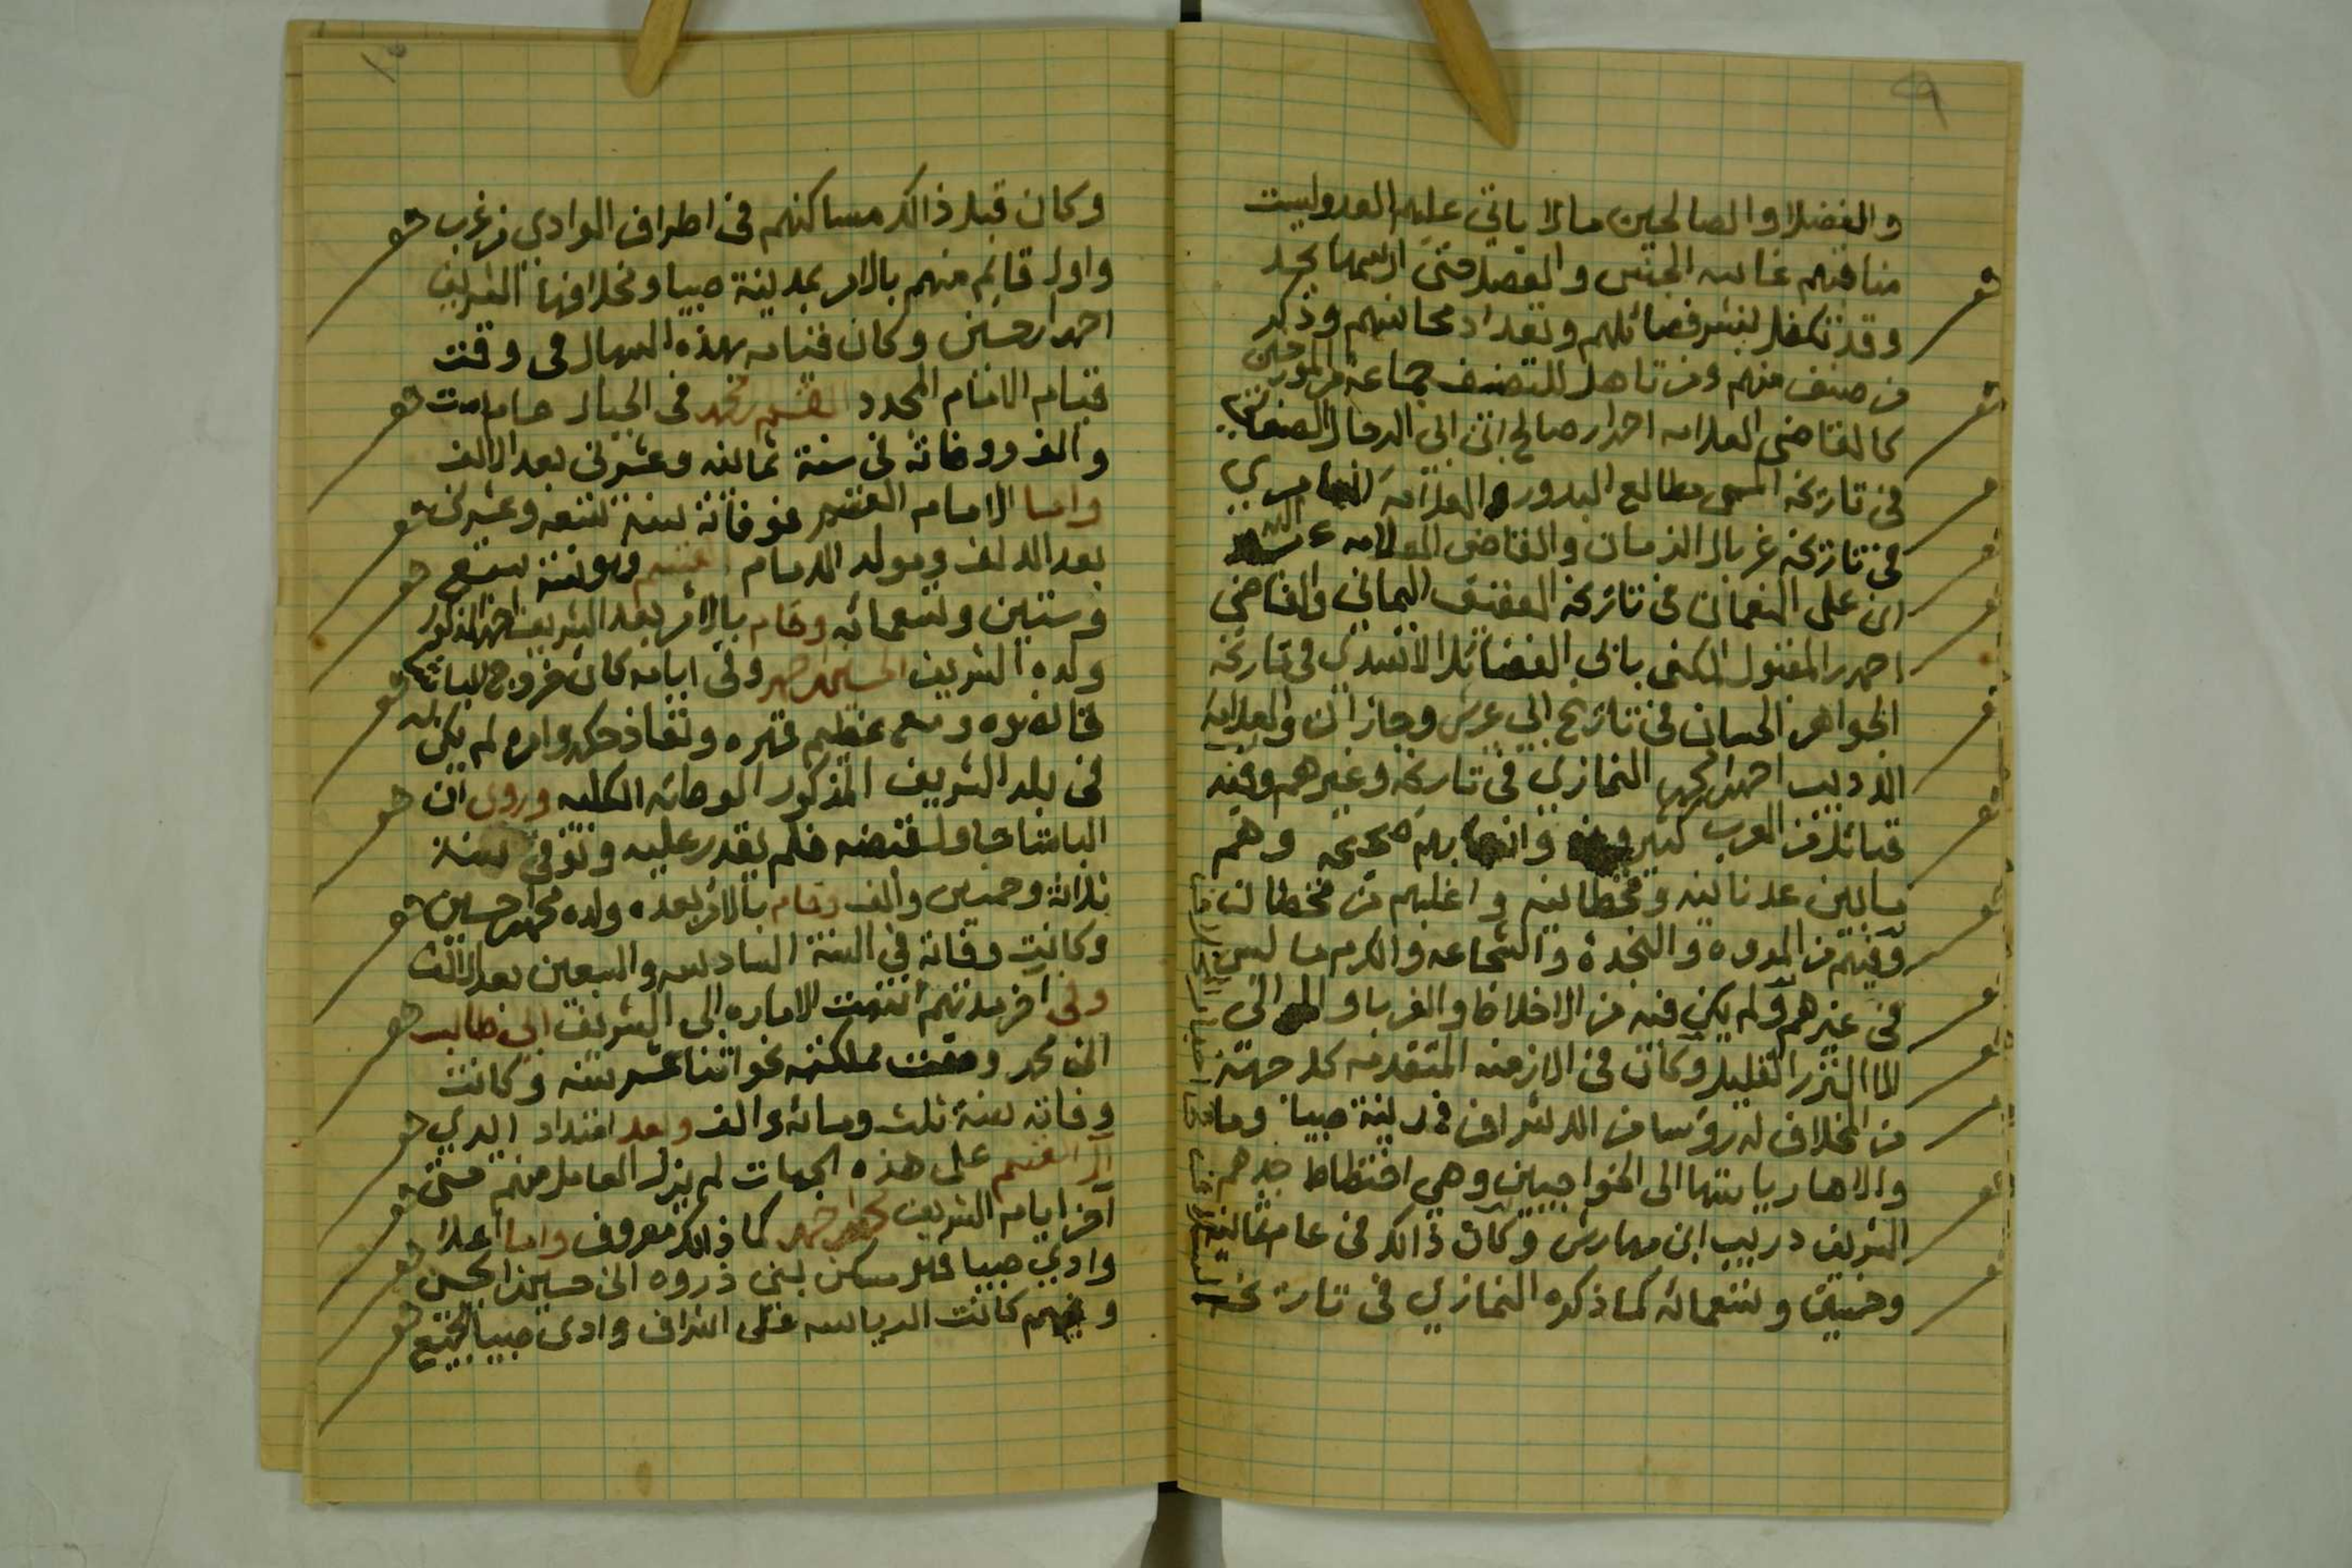 ٩
والفضلا والصالحين مالا ياتي عليه العد وليست
مناقبهم غايبه الجنس والفصل حتى
وقد تكفل بنشر فضائلهم وتعداد محاسنهم وذكر
من صنف منهم ومن تاهل للتصنيف جماعة من المورخين
كالقاضي العلامه احمد ابن صالح ابن ابي الرجال الصنعاني
في تاريخه المسمى مطالع البدور والعلامه
في تاريخه غربال الزمان والقاضي العلامه
ابن علي النعمان في تاريخه العقيق اليماني والقاضي
احمد المقنول المكنى بابي الفضائل الاسدي في تاريخه
الجواهر الحسان في تاريخ ابي عريش وجازان والعلامه
الاديب احمد ابن محمد النمازي في تاريخه وغيرهم وفيه
قبائل من العرب كثير وانسابهم صحيحه وهم
مابين عدنانيه وقحطانيه واغلبهم من قحطان
وفيهم من المروه والنجدة والشجاعه والكرم ما ليس
في غيرهم ولم يكن فيه من الاخلاط والغربا والموالي
الا النزر القليل وكان في الازمنه المتقدمه كل جهة
من المخلاف له رؤسا من الاشراف في مدينة صبيا وما
والاها رياستها الى الخواجيين وهي اختطاط جدهم
الشريف دريب ابن مهارش وكان ذالك في عام ثمانيه
وخمسين وتسعمائه كما ذكره النمازي في تاريخه
١٠
وكان قبل ذالك مساكنهم في اطراف الوادي من غرب
واول قايم منهم بالامر بمدينة صبيا ومخلافها الشريف
احمد ابن حسين وكان قيامه بهذه الشمال في وقت
قيام الامام المجدد القسم بن محمد في الجبال عام ست
والف ووفاته في سنة ثمانيه وعشرين بعد الالف
واما الامام القسم فوفاته سنة تسعه وعشرين
بعد الالف ومولد الامام القسم وهو سنة سبع
وستين وتسعمائه وقام بالامر بعد الشريف احمد المذكور
ولده الشريف الحسين ابن احمد وفي ايامه كان خروج الباشا
قانصوه ومع عظيم قهره ونفاذ حكمه وامره لم يكن له
في بلد الشريف المذكور الوطاءه الكليه وروى ان
الباشا حاول قبضه فلم يقدر عليه وتوفي سنة
ثلاثة وخمسين والف وقام بالامر بعده ولده محمد ابن حسين
وكانت وفاته في السنة السادسه والسبعين بعد الالف
وفي اخر مدتهم انتهت الاماره الى الشريف ابي طالب
ابن محمد ومملكته نحو اثنا عشر سنه وكانت
وفاته سنة ثلث ومائه والف وبعد امتداد ايدي
ال القسم على هذه الجهات لم يزل العامل منهم حتى
آخر ايام الشريف محمد ابن احمد كما ذالك معروف واما اعلا
وادي صبيا فهو مسكن لبني ذروه ابن حسين ابن الحسن
وفيهم كانت الرياسه على اشراف وادي صبيا اجمع